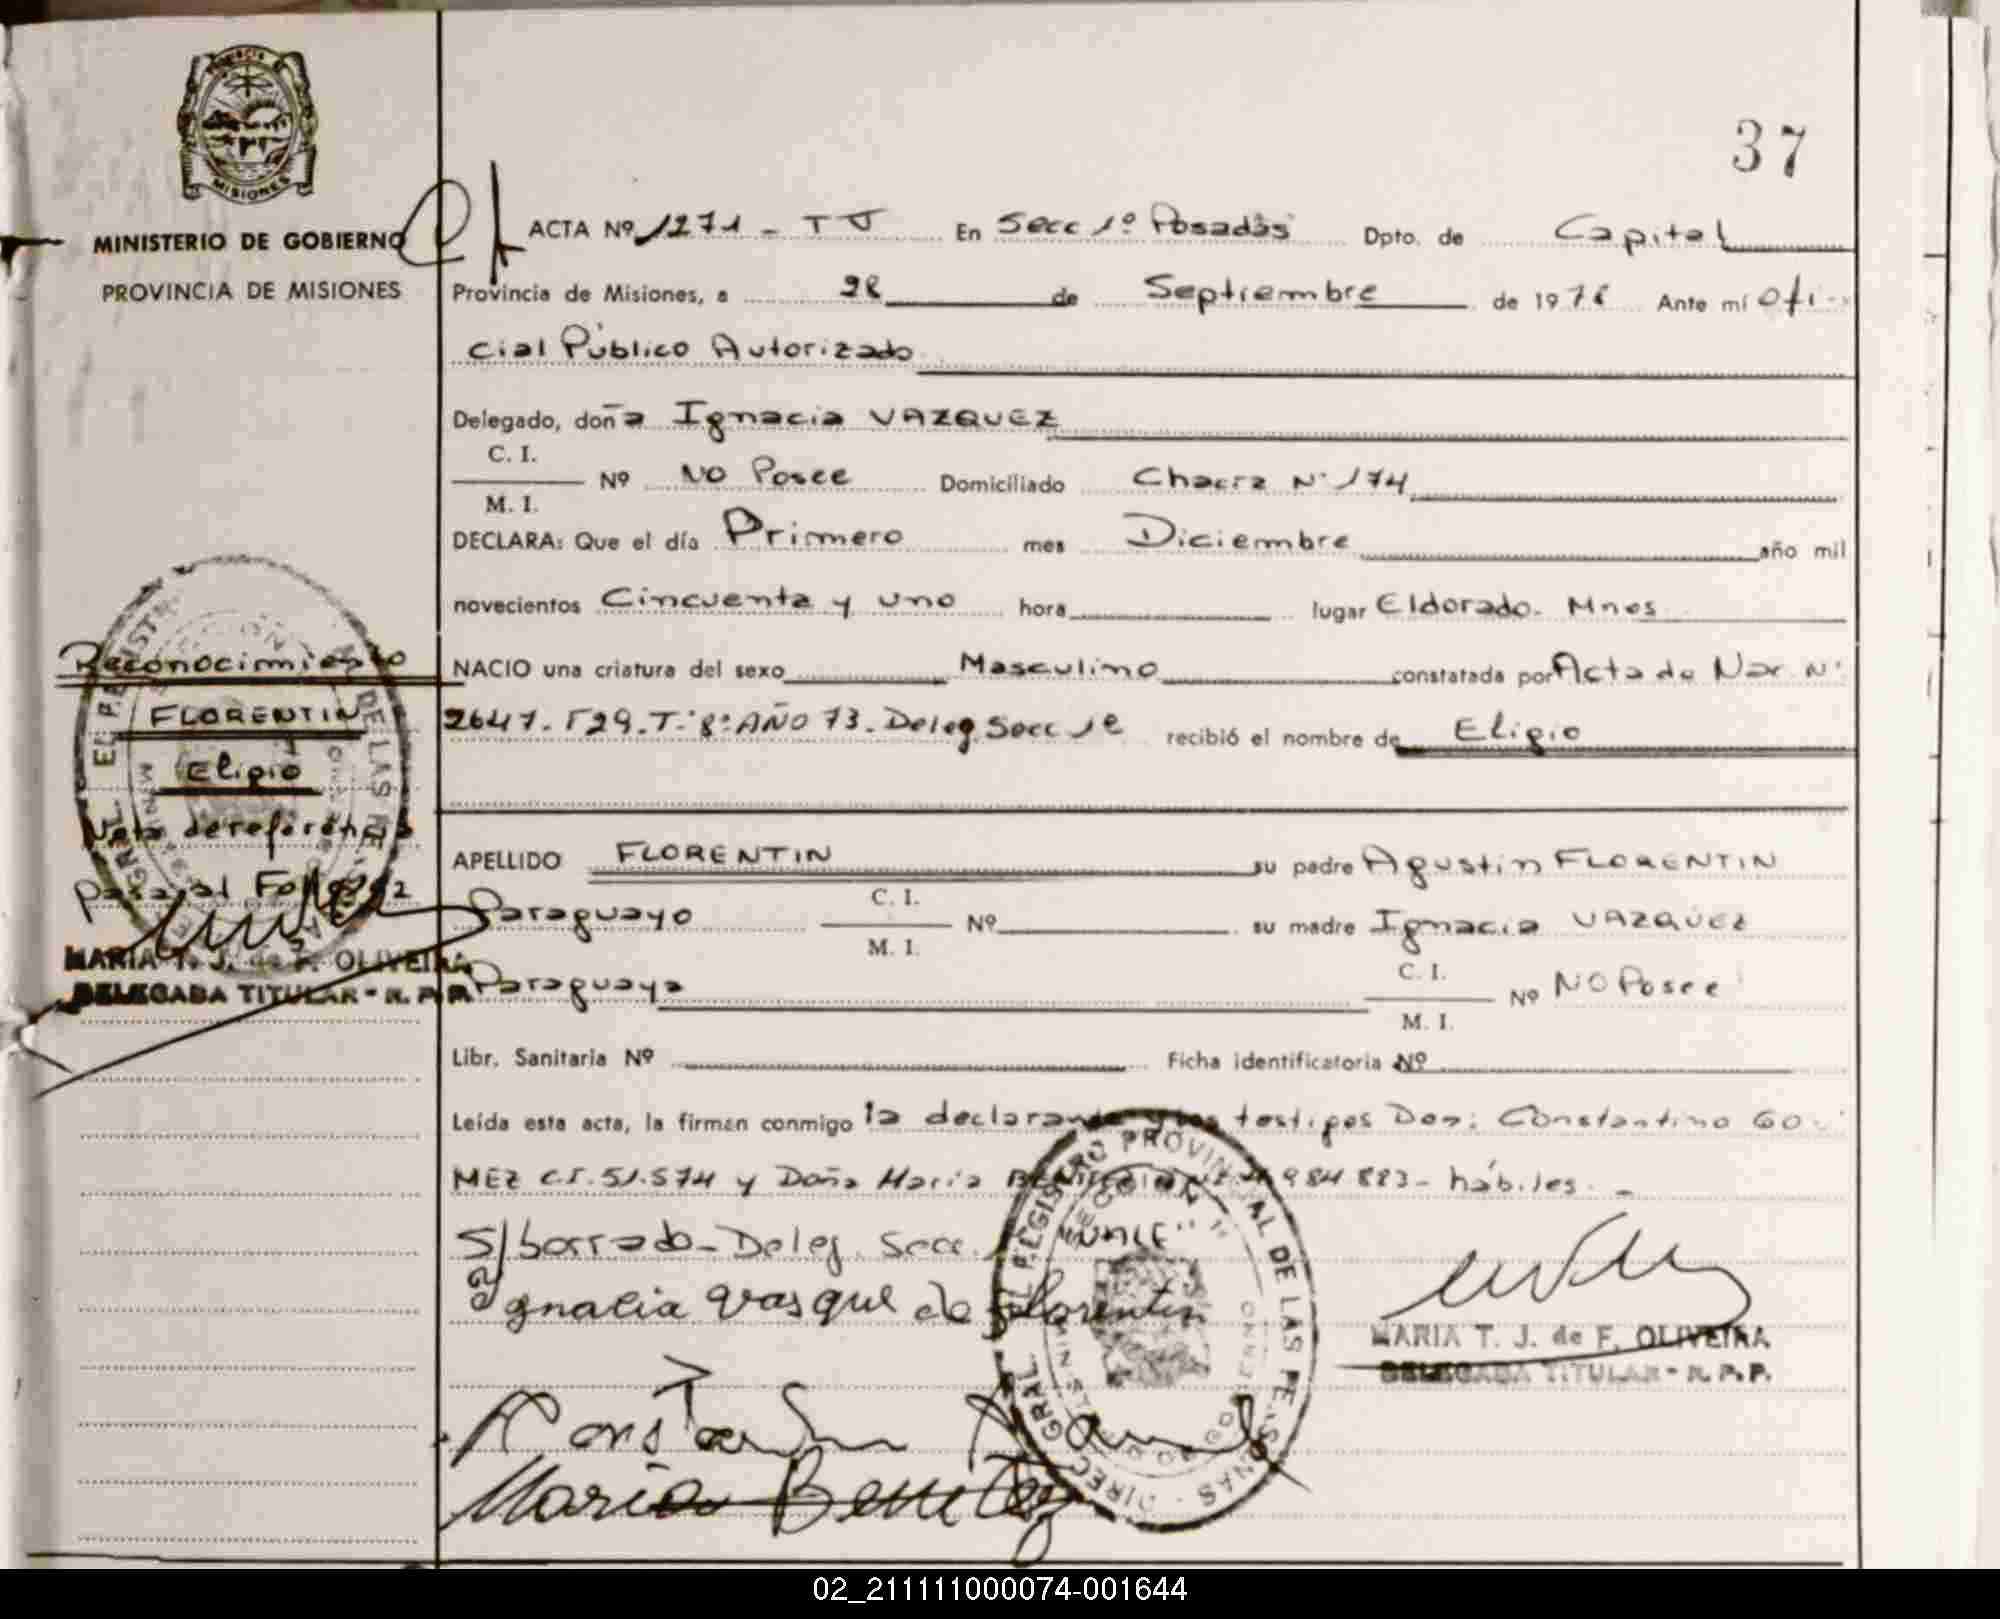 37
MISIONES
MINISTERIO DE GOBIERNO
PROVINCIA DE MISIONES
ACTA Nº 1271 - En Secc 1º Posadas Dpto. de Capital
Provincia de Misiones, a 28 de Septiembre de 1976 Ante mí Ofi-
cial Público Autorizado
Delegado, doña Ignacia VAZQUEZ
C. I.
Nº No Posee Domiciliado Chacra Nº 174
M. I.
DECLARA: Que el día Primero mes Diciembre año mil
novecientos Cincuenta y uno hora lugar Eldorado. Mnes
NACIO una criatura del sexo Masculino constatada por Acta de Nac. Nº
2647. F29. T. 8º AÑO 73. Deleg Secc 1º recibió el nombre de Eligio
APELLIDO FLORENTIN su padre Agustin FLORENTIN
C. I.
Paraguayo Nº su madre Ignacia VAZQUEZ
M. I.
C. I.
Paraguaya Nº NO Posee
M. I.
Libr. Sanitaria Nº Ficha identificatoria Nº
Leída esta acta, la firman conmigo la declarante y los testigos Don: Constantino GO-
MEZ C.I. 51.574 y Doña Maria 984.883- hábiles. -
S/borrado-Deleg. Secc. "VALE"
Ygnacia Vasque de Florentin
Maria Benitez
MARIA T. J. de F. OLIVEIRA
DELEGADA TITULAR - R. P. P.
Reconocimiento
FLORENTIN
Eligio
Nota de referencia
para al
MARIA T. J. de F. OLIVEIRA
DELEGADA TITULAR - R. P. P.
02_211111000074-001644